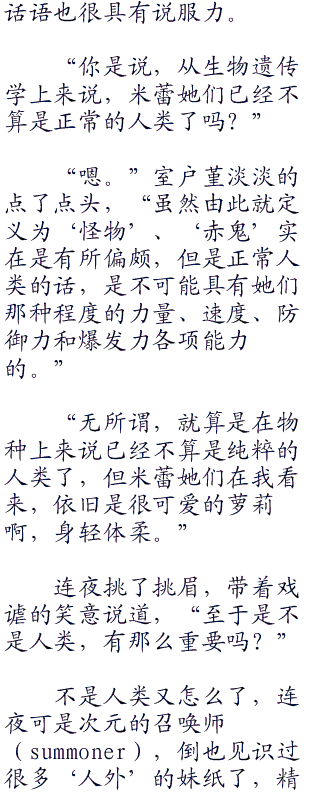 话语也很具有说服力。
“你是说，从生物遗传
学上来说，米蕾她们已经不
算是正常的人类了吗？”
“嗯。”室户堇淡淡的
点了点头，“虽然由此就定
义为‘怪物’、‘赤鬼’实
在是有所偏颇，但是正常人
类的话，是不可能具有她们
那种程度的力量、速度、防
御力和爆发力各项能力
的。”
“无所谓，就算是在物
种上来说已经不算是纯粹的
人类了，但米蕾她们在我看
来，依旧是很可爱的萝莉
啊，身轻体柔。”
连夜挑了挑眉，带着戏
谑的笑意说道，“至于是不
是人类，有那么重要吗？”
不是人类又怎么了，连
夜可是次元的召唤师
（summoner），倒也见识过
很多‘人外’的妹纸了，精